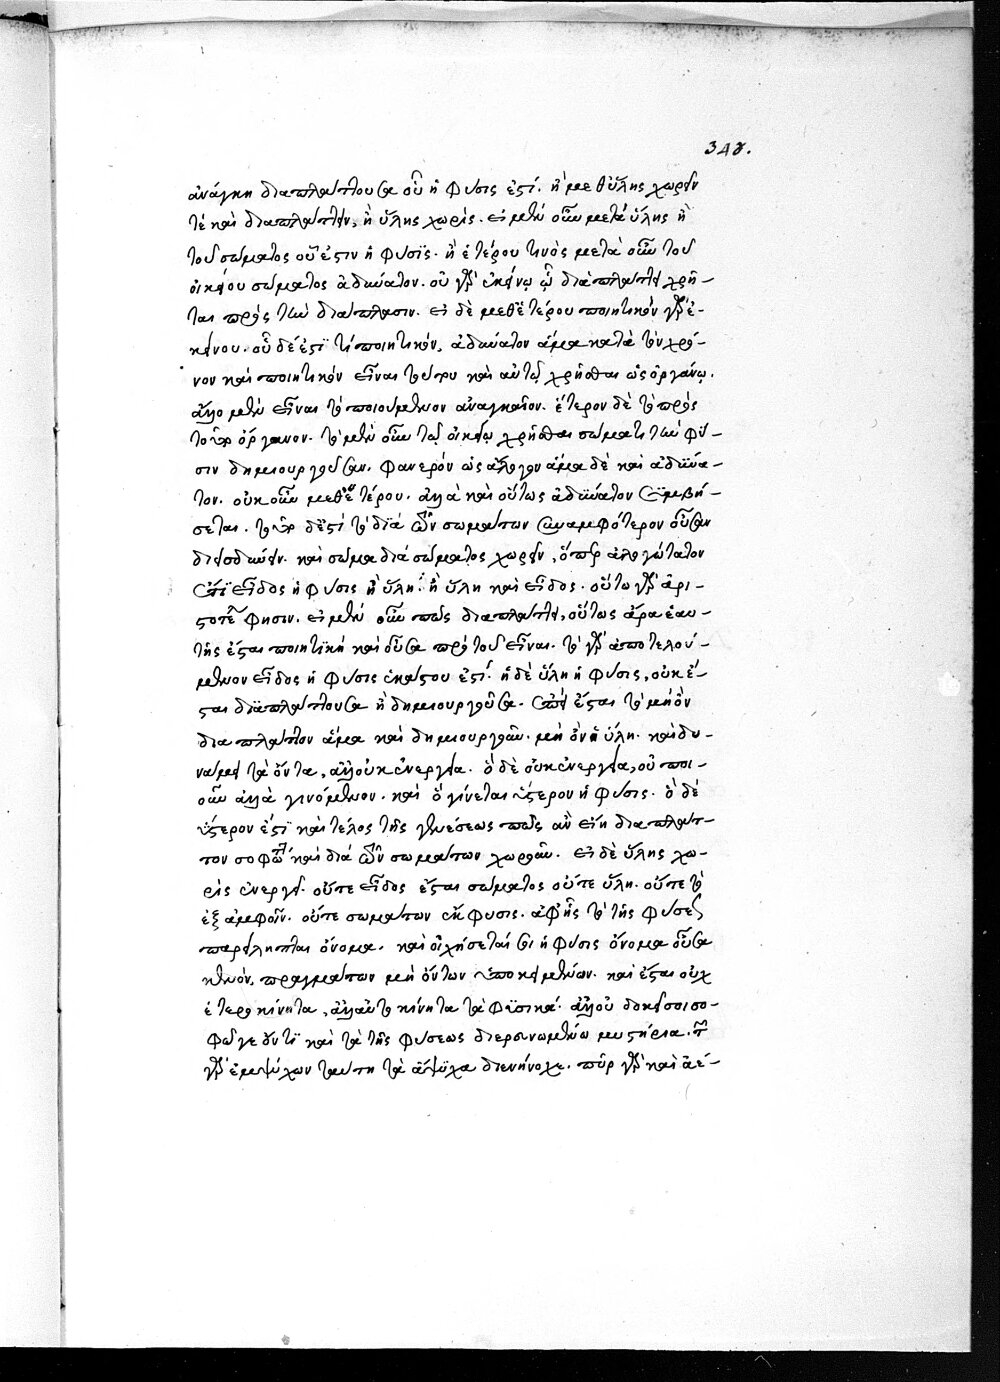 348.
ἀνάγκη διαπλάττουσα οὗ ἡ φύσις ἐστί. ἢ μεθ ὕλης χωρεῖν
τὲ καὶ διαπλάττειν, ἢ ὕλης χωρίς. εἰ μὲν οὖν μετὰ ὕλης ἢ
τοῦ σώματος οὗ ἐστιν ἡ φύσις. ἢ ἑτέρου τινὸς μετὰ οὖν τοῦ
οἰκείου σώματος ἀδύνατον. οὐ γὰρ ἐκείνῳ ᾧ διαπλάττει χρῆ-
ται πρὸς τὴν διάπλασιν. εἰ δὲ μεθ ἑτέρου ποιητικὸν γὰρ ἐ-
κείνου. οὗ δέ ἐστι τί ποιητικόν, ἀδύνατον ἅμα κατὰ τὸν χρό-
νον καὶ ποιητικὸν εἶναι τούτου καὶ αὐτῷ χρῆσθαι ὡς ὀργάνῳ.
ἄλλο μὲν εἶναι τὸ ποιούμενον ἀναγκαῖον. ἕτερον δὲ τὸ πρὸς
τοῦτο ὄργανον. τὸ μὲν οὖν τῷ οἰκείῳ χρῆσθαι σώματι τὴν φύ-
σιν δημιουργοῦσαν. φανερὸν ὡς ἄλογον ἅμα δὲ καὶ ἀδύνα-
τον. οὐκοῦν μεθ ἑτέρου. ἀλλὰ καὶ οὕτως ἀδύνατον συμβή-
σεται. τοῦτο δέ ἐστι τὸ διὰ τῶν σωμάτων συναμφότερον οὖσαν
διεισδύειν. καὶ σῶμα διὰ σώματος χωρεῖν, ὅπερ ἀλογώτατον
ἐπεὶ εἶδος ἡ φύσις ἢ ὕλη. ἢ ὕλη καὶ εἶδος. οὕτω γὰρ ἀρι-
στοτέλης φησιν. εἰ μὲν οὖν πῶς διαπλάττει, οὕτως ἄρα ἑαυ-
τῆς ἔσται ποιητικὴ καὶ οὖσα πρὸ τοῦ εἶναι. τὸ γὰρ ἀποτελού-
μενον εἶδος ἡ φύσις ἑκάστου ἐστί. ἡ δὲ ὕλη ἡ φύσις, οὐκ ἔ-
σται διαπλάττουσα ἢ δημιουργοῦσα. ἐπεὶ ἔσται τὸ μὴ ὂν
διαπλάττον ἅμα καὶ δημιουργοῦν. μὴ ὂν ἡ ὕλη. καὶ δυ-
νάμει τὰ ὄντα, ἀλλ οὐκ ἐνεργείᾳ. ὃ δὲ οὐκ ἐνεργείᾳ, οὐ ποι-
οῦν ἀλλὰ γινόμενον. καὶ ὃ γίνεται ὕστερον ἡ φύσις. ὃ δὲ
ὕστερον ἐστὶ καὶ τέλος τῆς γενέσεως πῶς ἂν εἴη διαπλάτ-
τον σοφῶς καὶ διὰ τῶν σωμάτων χωροῦν. εἰ δὲ ὕλης χω-
ρὶς ἐνεργεῖ. οὔτε εἶδος ἔσται σώματος οὔτε ὕλη. οὔτε τὸ
ἐξ ἀμφοῖν. οὔτε σωμάτων ἡ φύσις. ἀφ ἧς τὸ τῆς φύσεως
παρείληπται ὄνομα. καὶ οἰχήσεταί σοι ἡ φύσις ὄνομα οὖσα
κενόν, πραγμάτων μὴ ὄντων ὑποκειμένων. καὶ ἔσται οὐχ
ἑτεροκίνητα, ἀλλ αὐτοκίνητα τὰ φυσικά. ἀλλ οὐ δοκεῖ σοι σο-
φῷ γε ὄντι καὶ τὰ τῆς φύσεως διερευνωμένῳ μυστήρια. τῶν
γὰρ ἐμψύχων ταύτῃ τὰ ἄψυχα διενήνοχε. πῦρ γὰρ καὶ ἀέ-